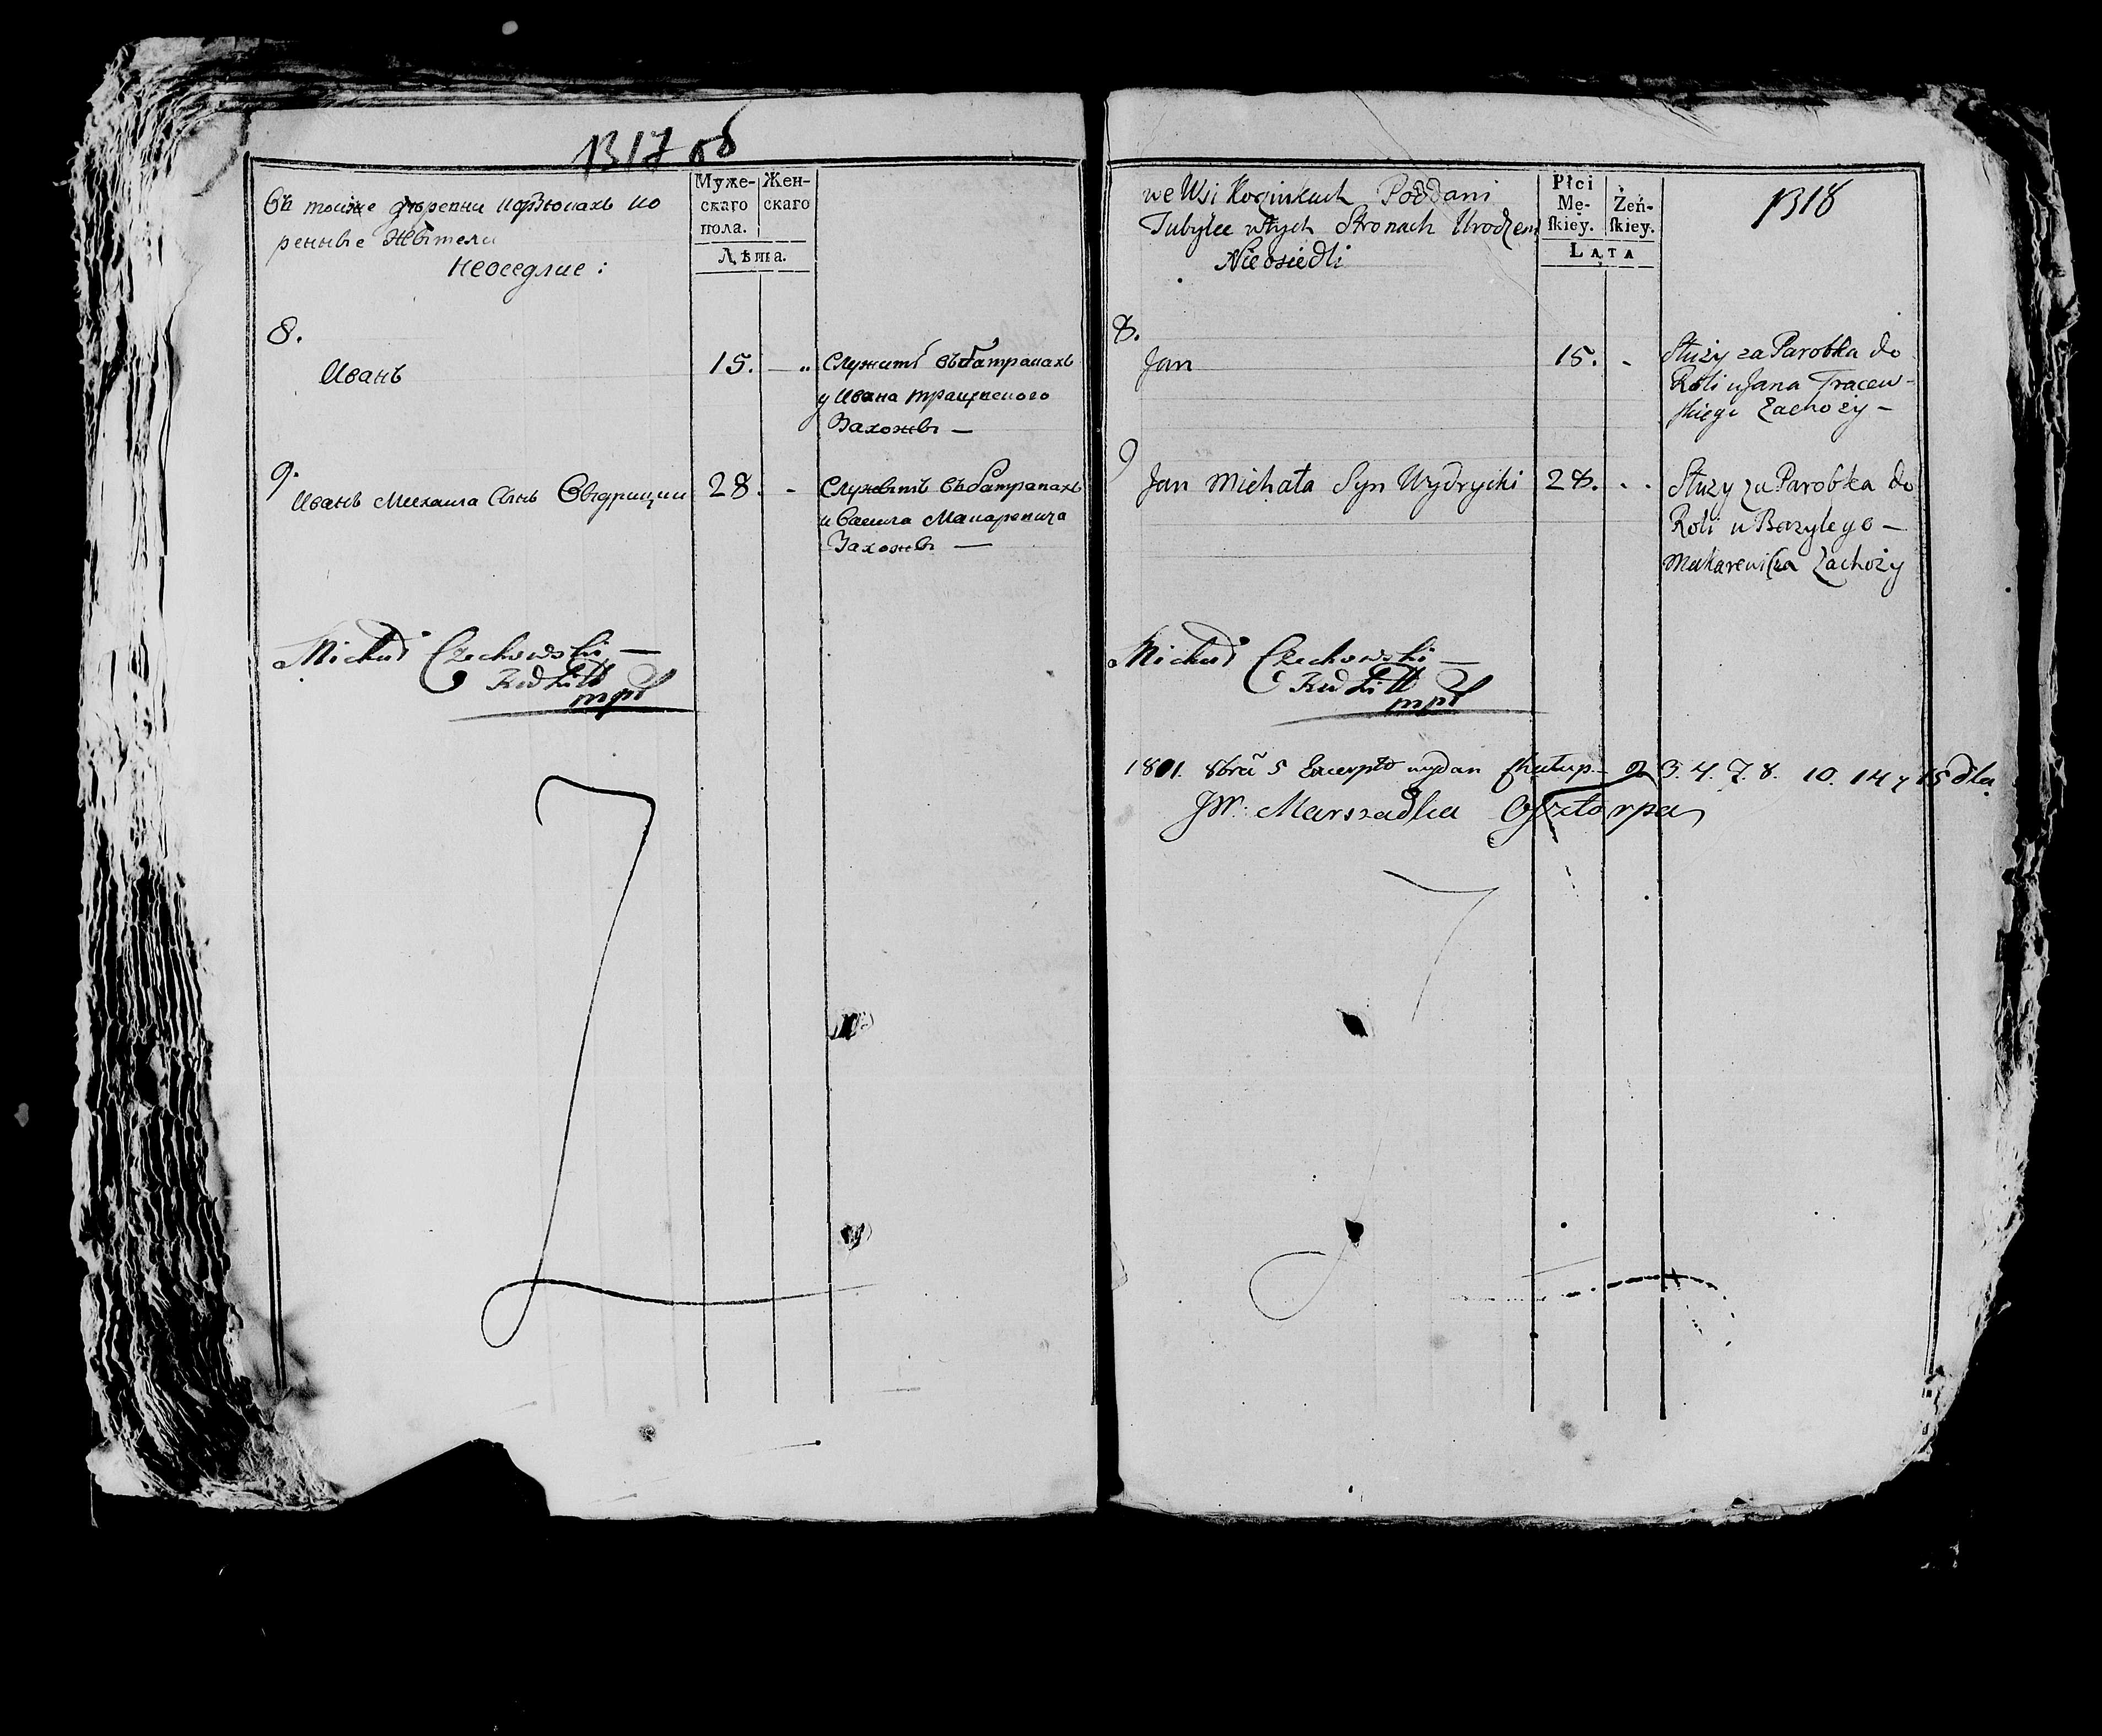 1317 об
Въ тойже деревни Козѣюкахъ ко
ренные Жытели
неоседлие:
Муже-
скаго
пола.
Жен-
скаго
Лѣта.
8.
Иванъ 15. — „ Служитъ въ батракахъ
у Ивана Трацевского
Захожы —
9.
Иванъ Михаила Сынъ Выдрицки 28. - Служытъ въ батракахъ
и Василя Макаревича
Захожы —
Michał Czechowski —
mpr
1318
we Wsi Kozinkach Poddani
Tubylce w tych Stronach Urodzeni
Nieosiedli
Płci
Mę-
ſkiey.
Żeń-
ſkiey.
LATA
8.
Jan 15. - Służy za Parobka do
Roli u Jana Tracew-
skiego Zachoży —
9
Jan Michała Syn Wydrycki 28. . . Służy za Parobka do
Roli u Bazylego —
Makarewicza Zachoży
Michał Czechowski —
mpr
1801. 8bra 5 Excerpt wydan 2 3. 4. 7. 8. 10. 14 y 15 dla
JW: Marszadka Oſztorpa